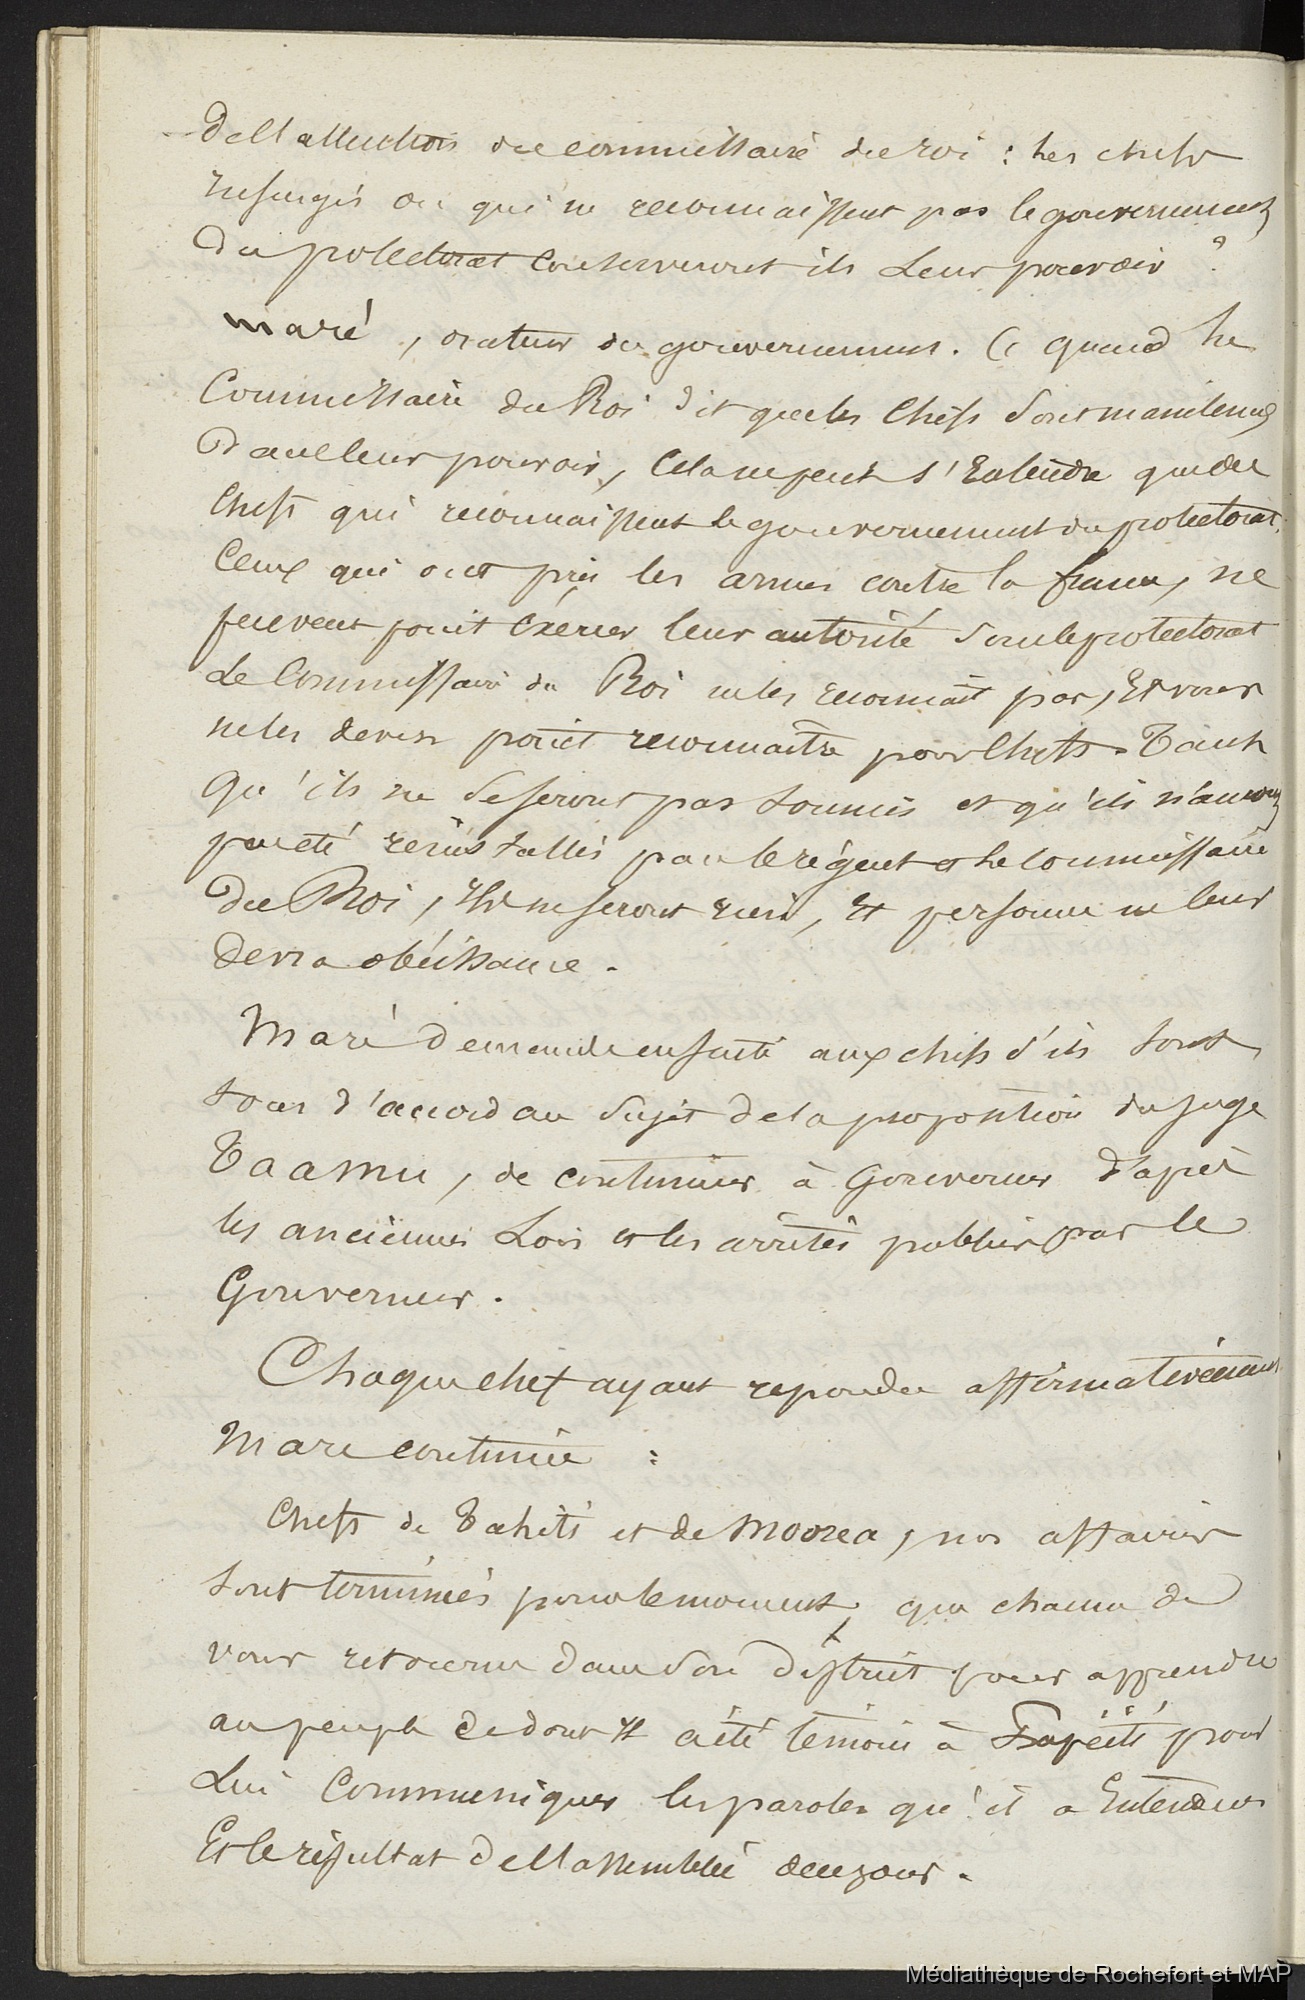 de l'allocution du commissaire du roi : les chefs
insurgés ou qui ne reconnaissent pas le gouvernement
du protectorat conserveront ils Leur pouvoir ?
maré, orateur du gouvernement. (( quand Le
Commissaire du Roi dit que les Chefs sont maintenus
dans leur pouvoir, Cela ne peut s'Entendre que des
Chefs qui reconnaissent le gouvernement du protectorat.
Ceux qui ont pris les armes contre la france, ne
peuvent point Exercer leur autorité sous le protectorat
Le Commissaire du Roi ne les reconnait pas, Et vous
ne les devez point reconnaitre pour Chefs. Tant
qu'ils ne se seront pas soumis et qu'ils n'auront
pas été réinstallés par le régent et Le commissaire
du Roi, Ils ne seront rien, Et personne ne leur
devra obéissance.
Maré demande ensuite aux chefs s'ils sont
tous d'accord au sujet de la proposition du juge
Taamu, de continuer à Gouverner d'après
les anciennes Lois et les arrêtés publiés par le
Gouverneur.
Chaque chef ayant repondu affirmativement
Mare continue :
Chefs de Tahiti et de Moorea, nos affaires
sont terminées pour le moment, que chacun de
vous retourne dans son district pour apprendre
au peuple ce dont Il a été témoin à Papéiti pour
Lui Communiquer les paroles qu'il a Entendues
Et le résultat de l'assemblée de ce jour.
Médiathèque de Rochefort et MAP